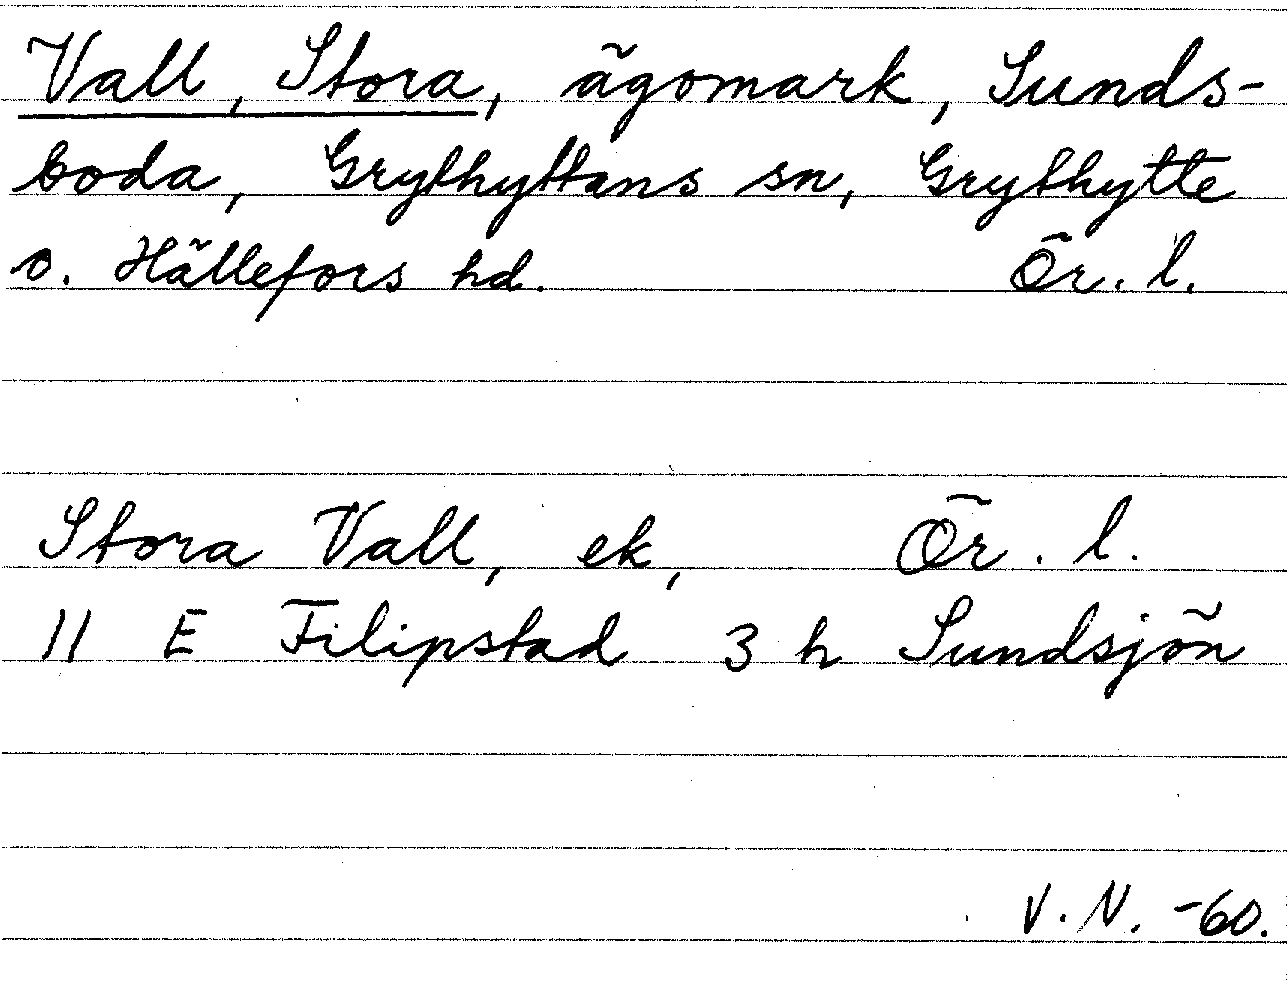 Vall, Stora, ägomark, Sunds-
boda, Grythyttans sn, Grythytte
o. Hällefors hd. Ör. l.
Stora Vall, ek, Ör. l.
11 E Filipstad 3 h Sundsjön
V. N. -60.